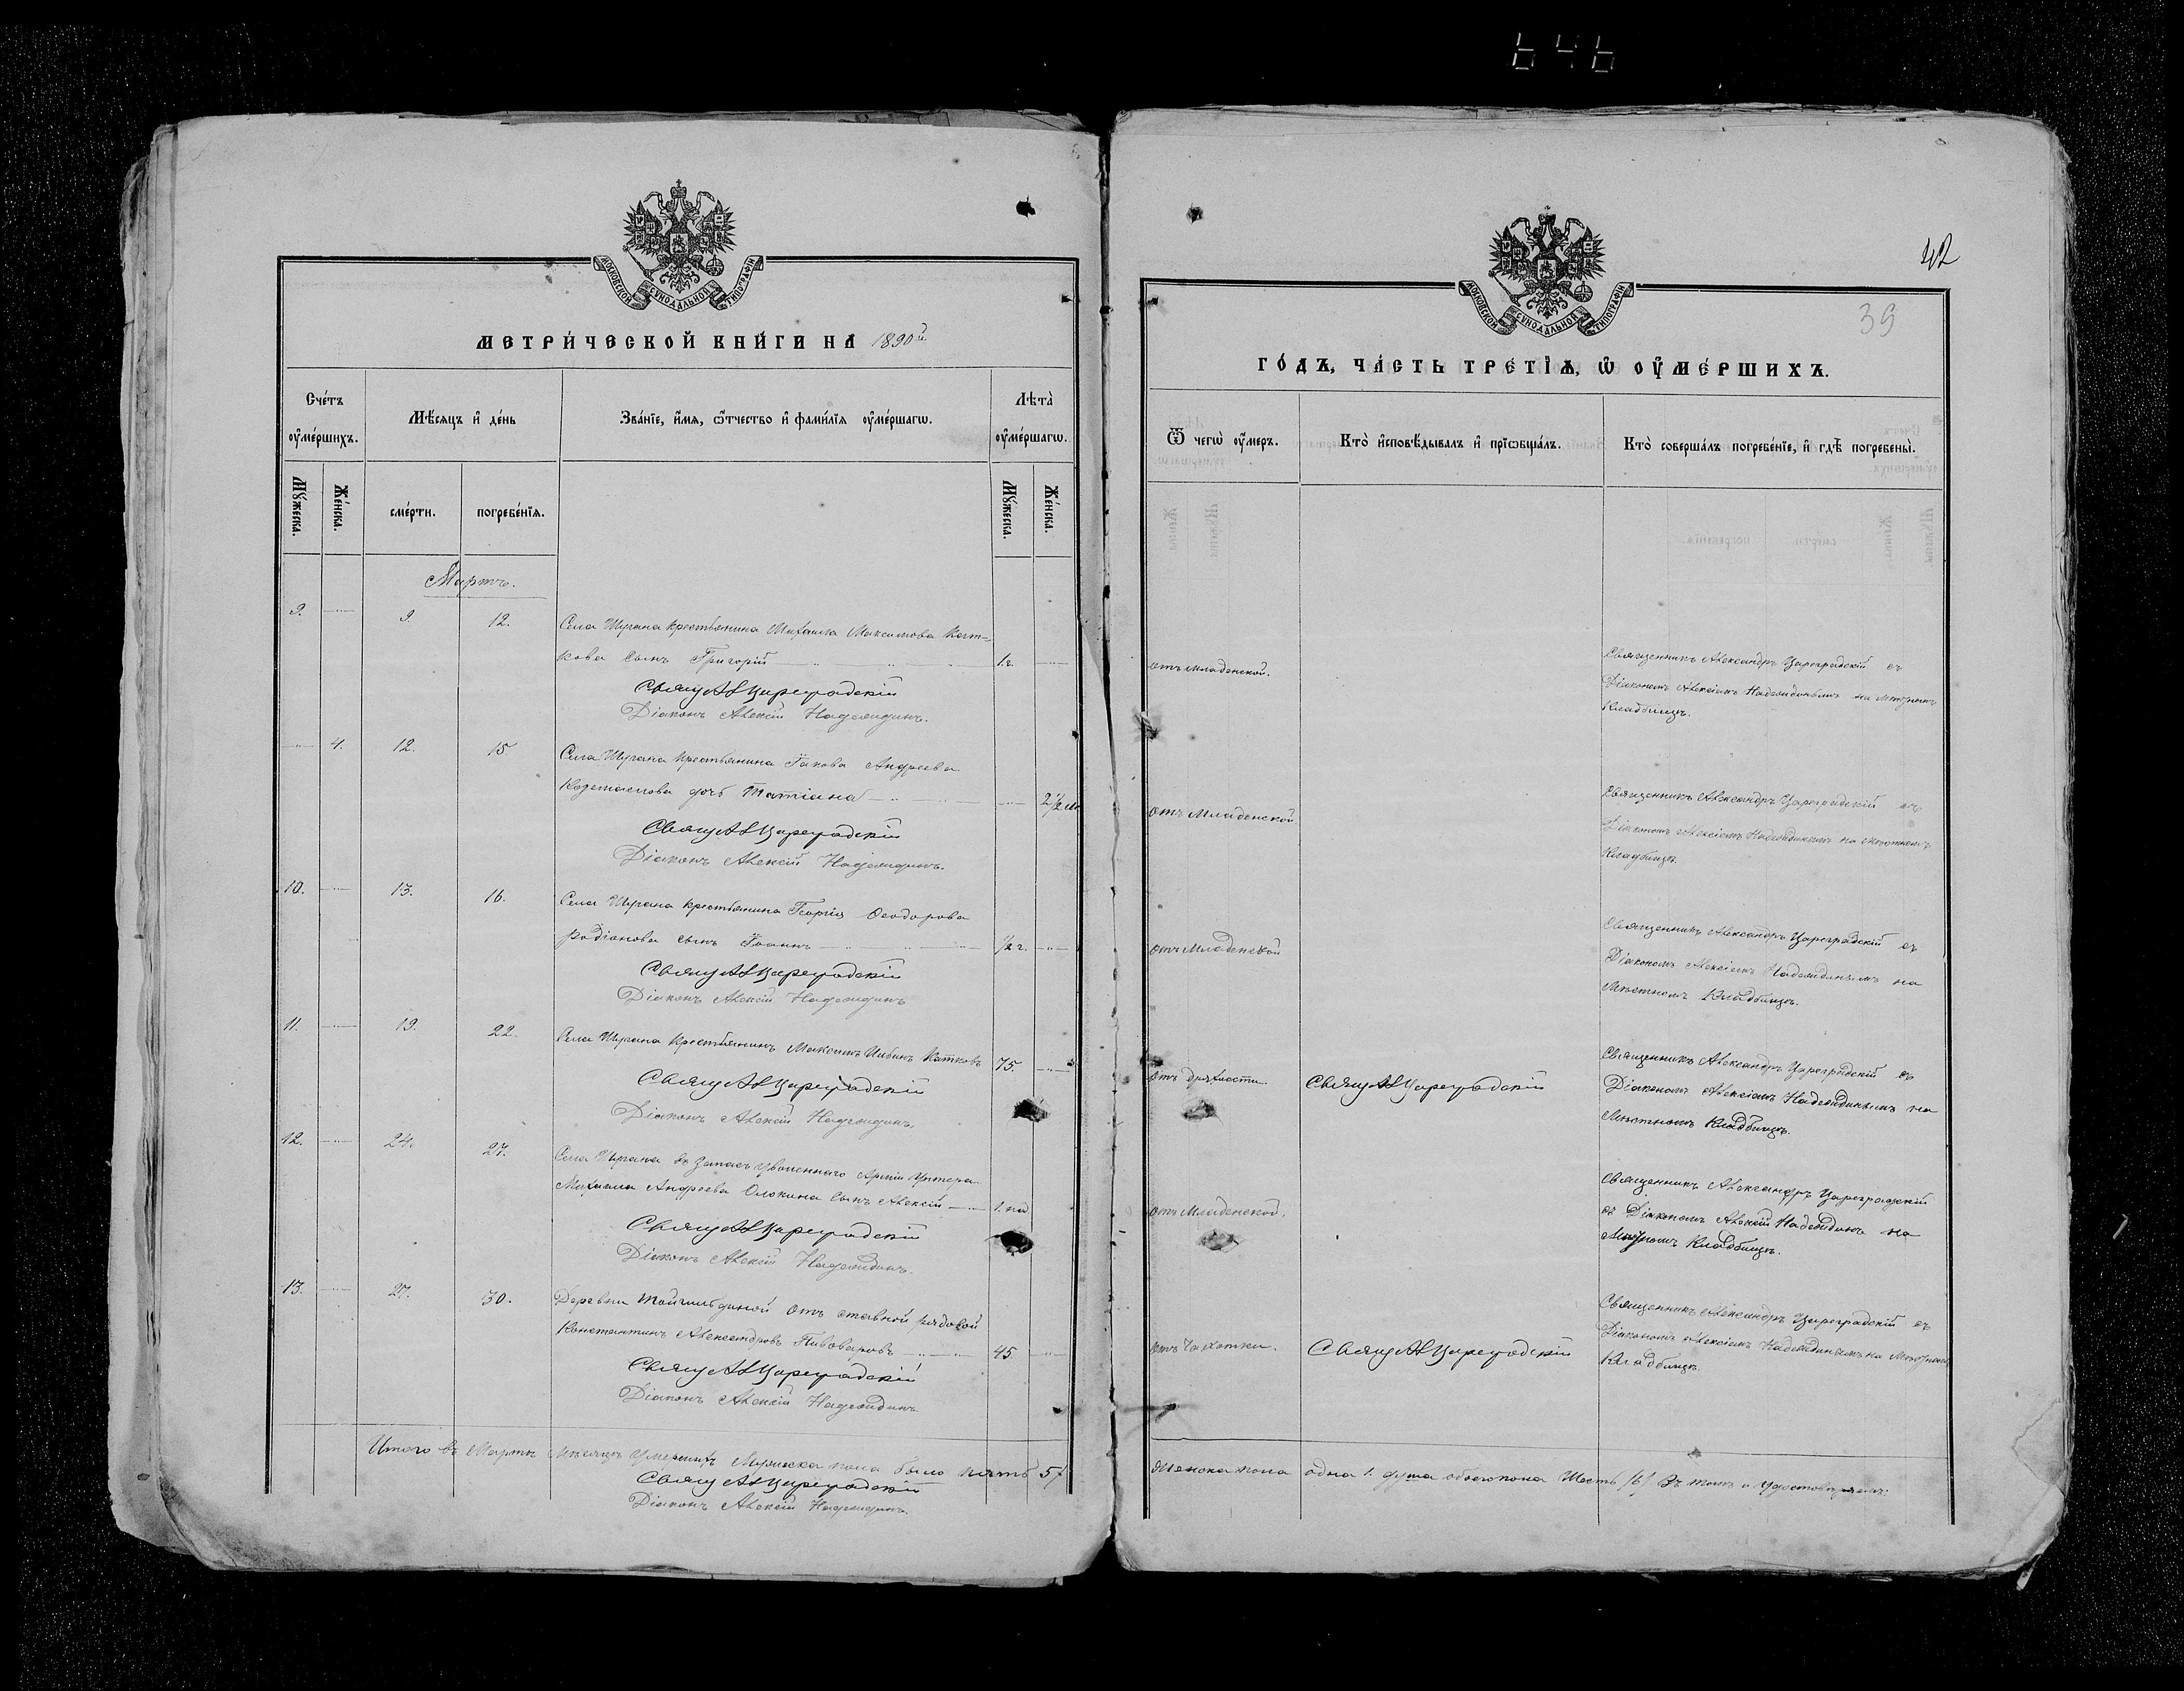 646
МОСКОВСКОЙ СѴНОДАЛЬНОЙ ТИПОГРАФІИ
МЕТРИ́ЧЕСКОЙ КНИ́ГИ НА 1890й
Сче́тъ оу҆ме́ршихъ.
Мѣ́сяцъ и҆ де́нь
Зва́нїе, и҆́мя, ѻ҆́тчество и҆ фами́лїя оу҆ме́ршагѡ.
Лѣта̀ оу҆ме́ршагѡ.
Му́жеска.
Же́нска.
сме́рти.
погребе́нїя.
Му́жеска.
Же́нска.
Мартъ.
9.
9.
12.
Села Шугана крестьянина Михаила Максимова Кат-
кова сынъ Григорій
1 г.
Свящ А Цареградскій
Діаконъ Алексій Надеждинъ.
4.
12.
15
Села Шугана крестьянина Іакова Андреева
дочь Татіана
2 1/2 м
Свящ А Цареградскій
Діаконъ Алексій Надеждинъ.
10.
13.
16.
Села Шугана крестьянина Георгія Ѳеодорова
Родіонова сынъ Іоаннъ
1/2 г.
Свящ А Цареградскій
Діаконъ Алексій Надеждинъ
11.
19.
22.
Села Шугана крестьянинъ Максимъ Катковъ
75
Свящ А Цареградскій
Діаконъ Алексій Надеждинъ.
12.
24.
27.
Села Шугана въ запасъ уволеннаго Арміи Унтера
Михаила Андреева сынъ Алексій
1. нед
Свящ А Цареградскій
Діаконъ Алексій Надеждинъ.
13.
27.
30.
Деревни отставной рядовой
Константинъ Александровъ Пивоваровъ
45.
Свящ А Цареградскій
Діаконъ Алексій Надеждинъ
Итого въ Мартѣ мѣсяцѣ умершихъ Мужеска пола было пять 5/
Свящ А Цареградскій
Діаконъ Алексій Надеждинъ.
42
39
МОСКОВСКОЙ СѴНОДАЛЬНОЙ ТИПОГРАФІИ
ГО́ДЪ, ЧА́СТЬ ТРЕ́ТІѦ, Ѡ҆ ОУ҆МЕ́РШИХЪ.
Ѿ чегѡ̀ оу҆́меръ.
Кто̀ и҆сповѣ́дывалъ и҆ прїѡбща́лъ.
Кто̀ соверша́лъ погребе́нїе, и҆ гдѣ̀ погребены̀.
отъ младенской.
Священникъ Александръ Цареградскій съ
Діакономъ Алексіемъ Надеждинымъ на мѣстномъ
Кладбищѣ.
отъ Младенской
Священникъ Александръ Цареградскій съ
Діакономъ Алексіемъ Надеждинымъ на мѣстномъ
Кладбищѣ.
отъ Младенской
Священникъ Александръ Цареградскій съ
Діакономъ Алексіемъ Надеждинымъ на
Мѣстномъ Кладбищѣ.
отъ дряхлости.
Свящ А Цареградскій
Священникъ Александръ Цареградскій съ
Діакономъ Алексіемъ Надеждинымъ на
Мѣстномъ Кладбищѣ.
отъ Младенской.
Священникъ Александръ Цареградскій
съ Діакономъ Алексій Надеждинъ на
Мѣстномъ Кладбищѣ.
отъ Чахотки.
Свящ А Цареградскій
Священникъ Александръ Цареградскій съ
Діакономъ Алексіемъ Надеждинымъ на Мѣстномъ
Кладбищѣ.
Женска пола одна 1. душа обоего пола Шесть /6/ Въ томъ и удостовѣряемъ: